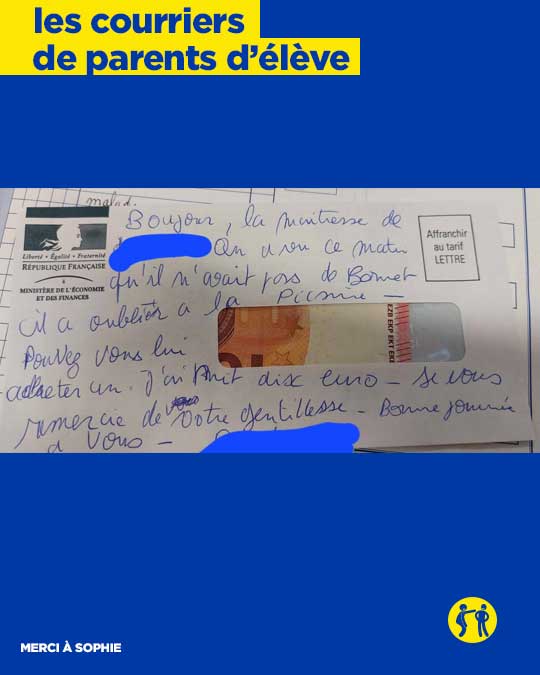 les courriers
de parents d'élève
malad.
Boujour, la maitresse de
On a vu ce matin
qu'il n'avait pas de Bonnet
il a oublier a la Picsine –
Pouvez vous lui
acheter un. J'ai mit disc euro – Je vous
remercie de votre gentillesse – Bonne journée
a vous –
Liberté • Égalité • Fraternité
RÉPUBLIQUE FRANÇAISE
MINISTÈRE DE L'ÉCONOMIE
ET DES FINANCES
Affranchir
au tarif
LETTRE
EZB EKP EKT
MERCI À SOPHIE